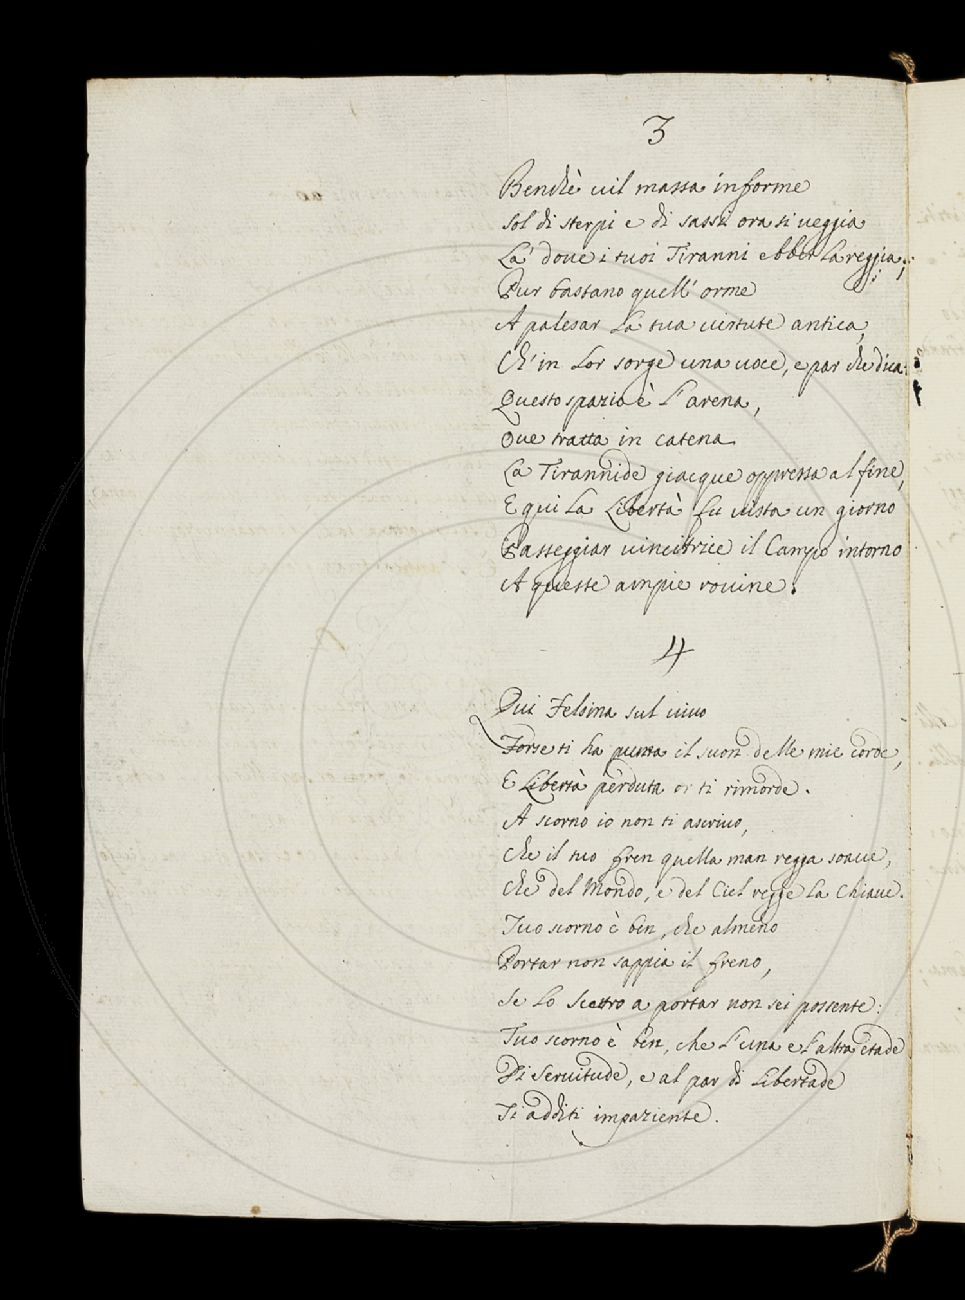 3
Benchè uil massa informe
Sol di sterpi e di sassi ora si ueggia
Là doue i tuoi Tiranni ebber La reggia;
Pur bastano quell' orme
A palesar La tua uirtute antica,
Ch' in Lor sorge una uoce, e par che dica:
Questo spazio è L' arena,
Oue tratta in catena
La Tirannide giacque oppressa al fine,
E qui La Libertà fu uista un giorno
Passeggiar uincitrice il Campo intorno
A queste ampie rouine.
4
Qui Felsina sul uiuo
Forse ti ha punta il suon delle mie corde,
E Libertà perduta or ti rimorde.
A scorno io non ti ascriuo,
Che il tuo fren quella man regga soaue,
Che del Mondo, e del Ciel regge La Chiaue.
Tuo scorno è ben, che almeno
Portar non sappia il freno,
Se Lo Scettro a portar non sei possente:
Tuo scorno è ben, che L' una e L' altra etade
Di Seruitude, e al par di Libertade
Ti additi impaziente.